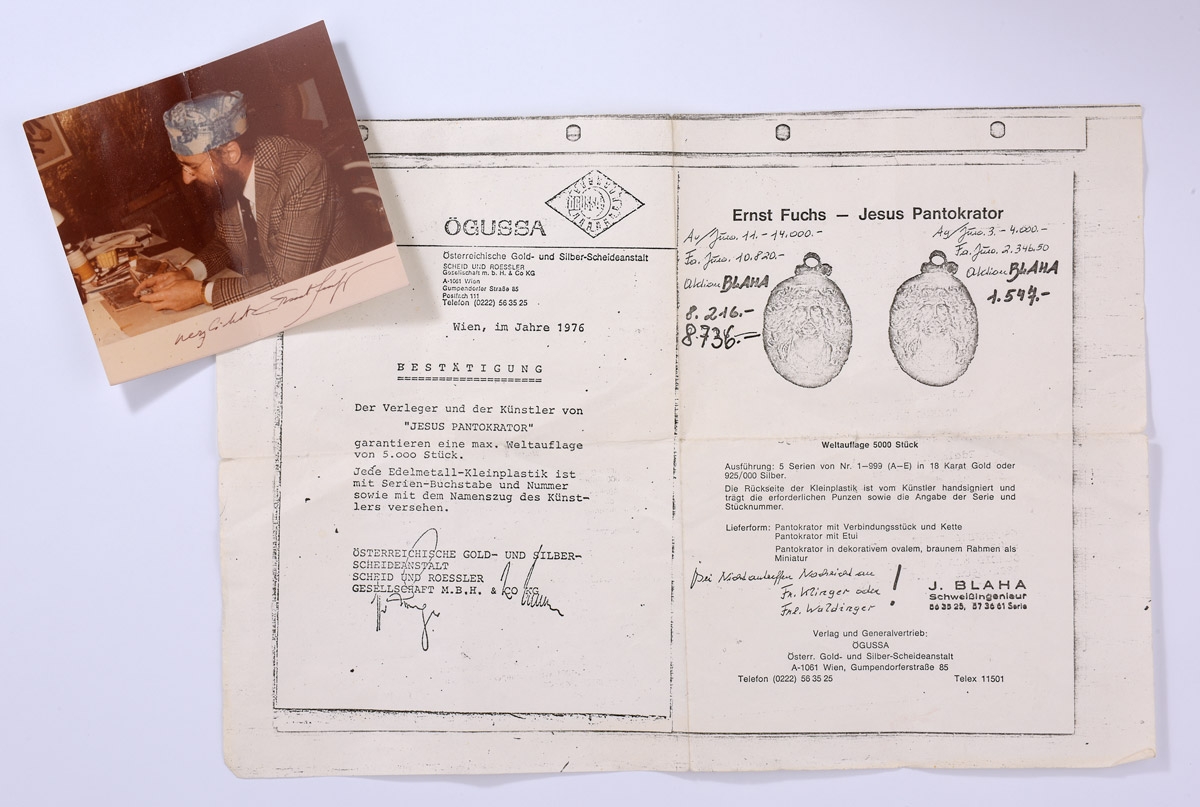 herzlichst Ernst Fuchs
ÖGUSSA
ÖGUSSA
Österreichische Gold- und Silber-Scheideanstalt
SCHEID UND ROESSLER
Gesellschaft m. b. H. & Co KG
A-1061 Wien
Gumpendorfer Straße 85
Postfach 111
Telefon (0222) 56 35 25
Wien, im Jahre 1976
BESTÄTIGUNG
Der Verleger und der Künstler von
"JESUS PANTOKRATOR"
garantieren eine max. Weltauflage
von 5.000 Stück.
Jede Edelmetall-Kleinplastik ist
mit Serien-Buchstabe und Nummer
sowie mit dem Namenszug des Künst-
lers versehen.
ÖSTERREICHISCHE GOLD- UND SILBER-
SCHEIDEANSTALT
SCHEID UND ROESSLER
GESELLSCHAFT M.B.H. & CO KG
Ernst Fuchs — Jesus Pantokrator
Au Juw. 11.- 14.000.-
Fa. Juw. 10.820.-
Aktion BLAHA
8.216.-
8736.-
Ag Juw. 3.- 4.000.-
Fa. Juw. 2.346.50
Aktion BLAHA
1.547.-
Weltauflage 5000 Stück
Ausführung: 5 Serien von Nr. 1–999 (A–E) in 18 Karat Gold oder
925/000 Silber.
Die Rückseite der Kleinplastik ist vom Künstler handsigniert und
trägt die erforderlichen Punzen sowie die Angabe der Serie und
Stücknummer.
Lieferform: Pantokrator mit Verbindungsstück und Kette
Pantokrator mit Etui
Pantokrator in dekorativem ovalem, braunem Rahmen als
Miniatur
Bei Nichtantreffen Nachricht an
Fr. Klinger oder
Frl. Waldinger !
J. BLAHA
Schweißingenieur
56 35 25, 57 36 61 Serie
Verlag und Generalvertrieb:
ÖGUSSA
Österr. Gold- und Silber-Scheideanstalt
A-1061 Wien, Gumpendorferstraße 85
Telefon (0222) 56 35 25 Telex 11501